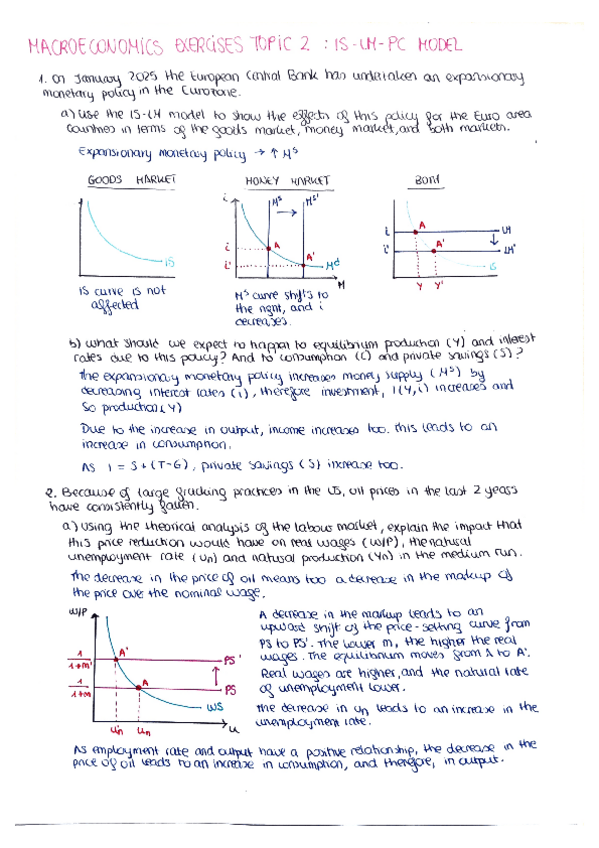 MACROECONOMICS EXERCISES TOPIC 2 : IS-LM-PC MODEL
1. On January 2025 the European Central Bank has undertaken an expansionary
monetary policy in the Eurozone.
a) Use the IS-LM model to show the effects of this policy for the Euro area
countries in terms of the goods market, money market, and both markets.
Expansionary monetary policy → ↑ Mˢ
GOODS MARKET
MONEY MARKET
BOTH
IS
i
Mˢ
Mˢ'
A
i
A'
i'
Mᵈ
M
A
i
LM
A'
i'
LM'
IS
Y Y'
IS curve is not
affected
Mˢ curve shifts to
the right, and i
decreases.
b) What should we expect to happen to equilibrium production (Y) and interest
rates due to this policy? And to consumption (C) and private savings (S)?
The expansionary monetary policy increases money supply (Mˢ) by
decreasing interest rates (i), therefore investment, I(Y,i) increases and
so production (Y)
Due to the increase in output, income increases too. This leads to an
increase in consumption.
As I = S + (T-G), private savings (S) increase too.
2. Because of large fracking practices in the US, oil prices in the last 2 years
have consistently fallen.
a) Using the theorical analysis of the labour market, explain the impact that
this price reduction would have on real wages (W/P), the natural
unemployment rate (un) and natural production (Yn) in the medium run.
The decrease in the price of oil means too a decrease in the markup of
the price over the nominal wage.
W/P
1/1+m'
A'
PS'
1/1+m
A
PS
WS
u'n
un
u
A decrease in the markup leads to an
upward shift of the price-setting curve from
PS to PS'. The lower m, the higher the real
wages. The equilibrium moves from A to A'.
Real wages are higher, and the natural rate
of unemployment lower.
The decrease in un leads to an increase in the
unemployment rate.
As employment rate and output have a positive relationship, the decrease in the
price of oil leads to an increase in consumption, and therefore, in output.